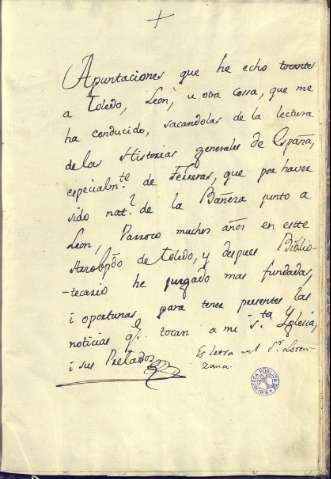 +
Apuntaciones que he echo tocantes
a Toledo, Leon, u otra cossa, que me
ha conducido, sacandolas de la lectura
de las Historias generales de España,
especialm.te de Ferreras, que por haver
sido nat.l de la Bañeza junto a
Leon, Parroco muchos años en este
Arzobpdo de Toledo, y despues Biblio-
-tecario he juzgado mas fundadas,
i oportunas para tener presentes las
noticias q.e tocan a mi S.ta Yglesia,
i sus Prelados
Es letra del S.r Loren-
zana.